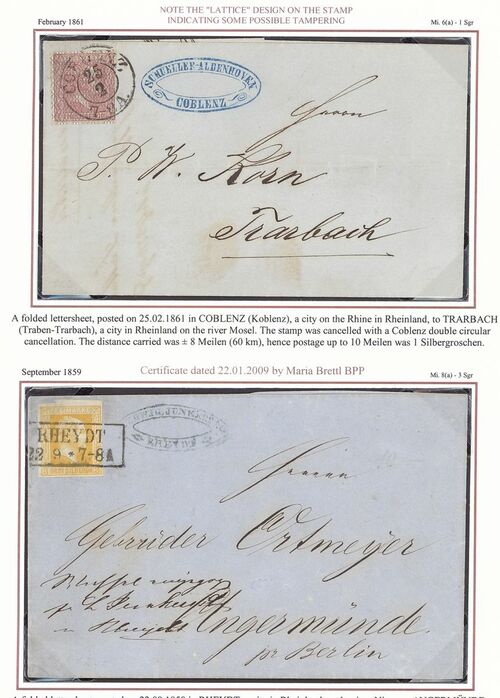 NOTE THE "LATTICE" DESIGN ON THE STAMP
INDICATING SOME POSSIBLE TAMPERING
February 1861
Mi. 6(a) - 1 Sgr
SCHUELLER-ALDENHOVEN
COBLENZ
25
2
Herrn
P. W. Korn
Trarbach
A folded lettersheet, posted on 25.02.1861 in COBLENZ (Koblenz), a city on the Rhine in Rheinland, to TRARBACH
(Traben-Trarbach), a city in Rheinland on the river Mosel. The stamp was cancelled with a Coblenz double circular
cancellation. The distance carried was ± 8 Meilen (60 km), hence postage up to 10 Meilen was 1 Silbergroschen.
September 1859
Certificate dated 22.01.2009 by Maria Brettl BPP
Mi. 8(a) - 3 Sgr
RHEYDT
RHEYDT
22 9 * 7-8A
Herren
Gebrüder Ortmeyer
Engermünde
pr Berlin